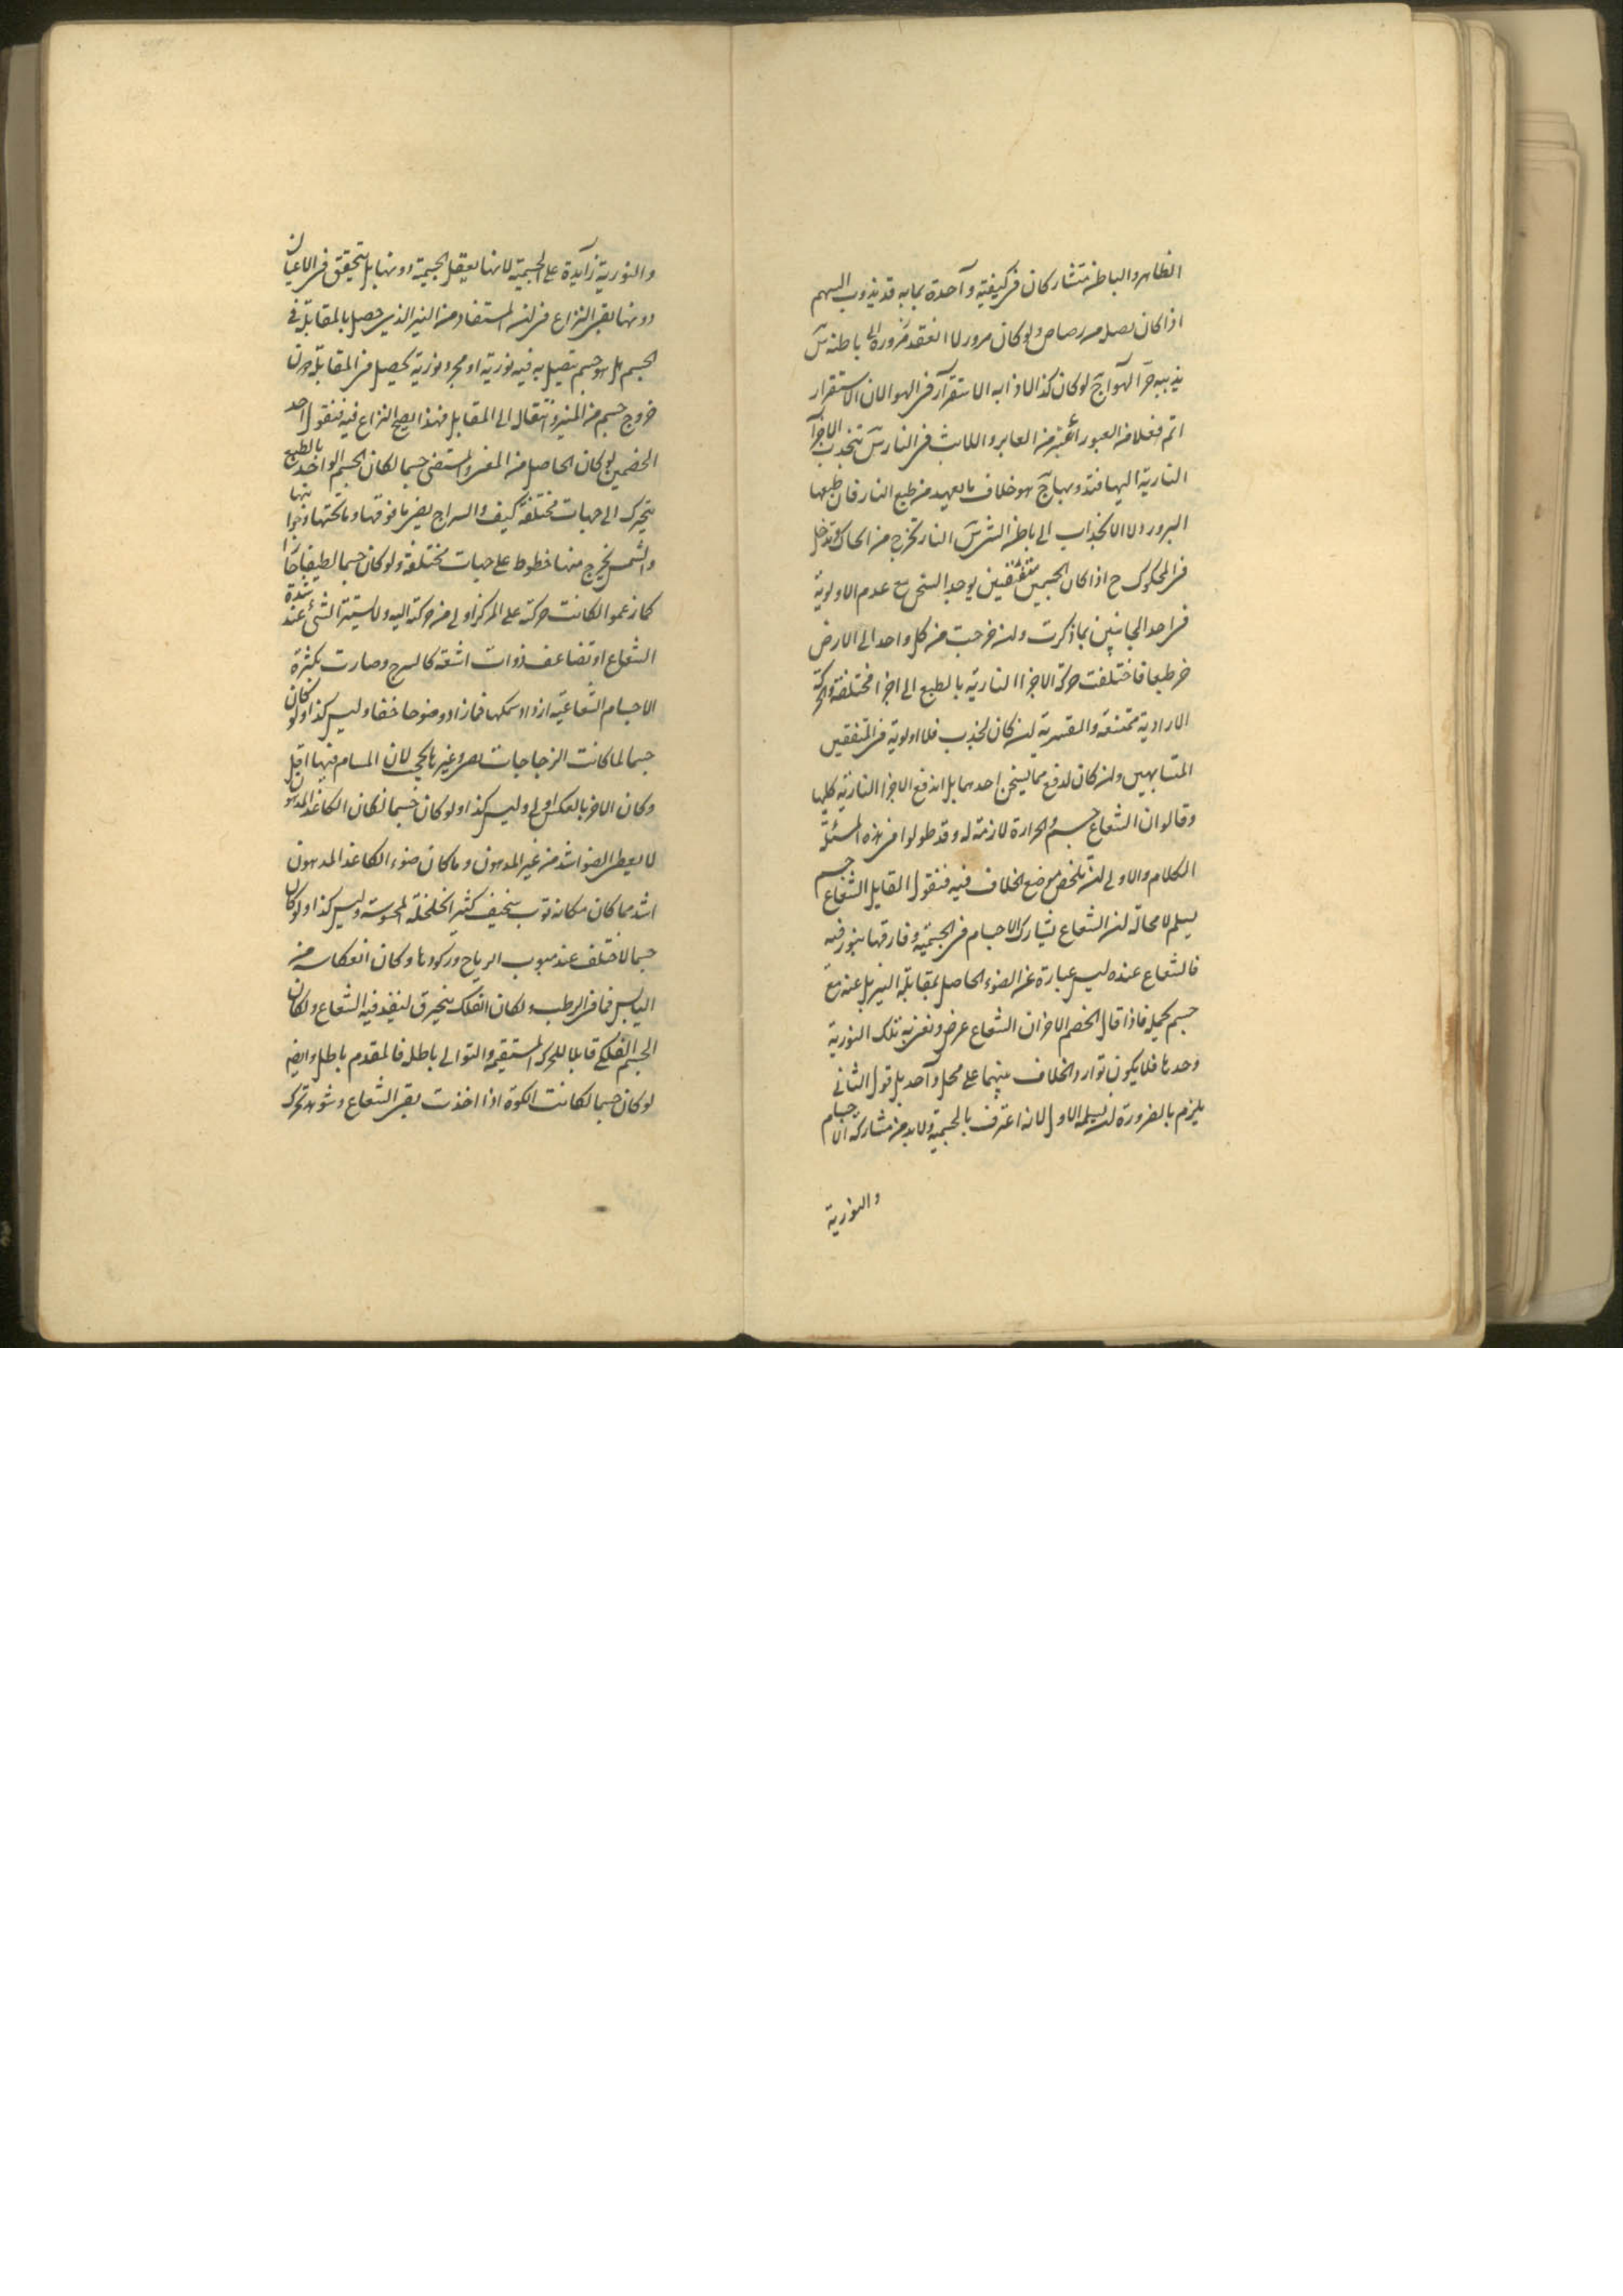 الظاهر والباطن متشاركان في كيفية واحدة بما به قد يذوب السهم
اذا كان نصله رصاص ولو كان مرور لا انعقد باطنه
حر الهواء لو كان كذا لاذابه الاستقرار في الهوا لان الاستقرار
اتم فعلا من العبور من العابر واللابث في النار تنجذب الاجزآ
النارية اليها هو خلاف ما لعهد من طبع النار فان طبعها
البرور لا الانجذاب الى باطن النار تخرج من الحاك وتدخل
في المحكوك ح اذا كان الجسمين متفقين يوجد التسخن مع عدم الاولوية
في احد الجانبين بما ذكرت ولن خرجت من كل واحد الى الارض
طبعا فاختلفت حركة الاجزا النارية بالطبع الى اجزا مختلفة والحركة
الارادية ممتنعة والقسرية لن كان لجذب فلا اولوية في المتفقين
المتشابهين ولن كان لدفع فما يسخن احدهما بل اندفع الاجزا النارية كلها
وقالوا ان الشعاع جسم والحرارة لازمة له وقد طولوا في هذه المسئلة
الكلام والاولى لن نلخص موضع الخلاف فيه فنقول القايل الشعاع جسم
يسلم لا محالة لن الشعاع يشارك الاجسام في الجسمية وفارقها بنور فيه
فالشعاع عنده ليس عبارة عن الضوء الحاصل بمقابلة النير بل عنه مع
جسم يحمله فاذا قال الخصم الاخر ان الشعاع عرض ونعني به تلك النورية
وحدها فلا يكون توارد الخلاف بينهما على محل واحد بل قول الثاني
يلزم بالضرورة لن يسلمه الاول لانه اعترف بالجسمية ولابد من مشاركة الاجسام
والنورية
والنورية زايدة على الجسمية لانها يعقل الجسمية دونها بل يتحقق في الاعيان
دونها بقي النزاع في لن المستفاد من النير الذي حصل بالمقابلة في
الجسم هل هو جسم يتصل به فيه نورية او مجرد نورية يحصل في المقابل دون
خروج جسم من المنير وانتقال الى المقابل فهذا يصح النزاع فيه فنقول احد
الخصمين لو كان الحاصل من المضى والمستضى جسما لكان الجسم الواحد بالطبع
يتحرك الى جهات مختلفة كيف والسراج يضى ما فوقها وما تحتها وجوانبها
والشمس يخرج منها خطوط على جهات مختلفة ولو كان جسما لطيفا حارا
كما زعموا لكانت حركته على المركز اولى من حركته اليه ولاستتر الشئ عند شدة
الشعاع او تضاعف ذوات اشعة كالسرج وصارت بكثرة
الاجسام الشعاعية ازداد سمكها فما زاد وضوحا خفا وليس كذا ولو كان
جسما لما كانت الزجاجات وغيرها يحجب لان المسام فيها اقل
وكان الامر بالعكس اولى وليس كذا ولو كان جسما لكان الكاغذ المدهون
لا يعطى الضو اشد من غير المدهون وما كان ضوء الكاغذ المدهون
اشد مما كان مكانه ثوب سخيف كثير الخلخلة المحسوسة وليس كذا ولو كان
جسما لاختلف عند هبوب الرياح وركودها وكان انعكاسه من
اليابس فما في الرطب ولكان الفلك ينخرق لينفذ فيه الشعاع ولكان
الجسم الفلكى قابلا للحركة المستقيمة والتوالى باطلة فالمقدم باطل وايضا
لو كان جسما لكانت الكوة اذا اخذت بقى الشعاع وشوهد تحرك